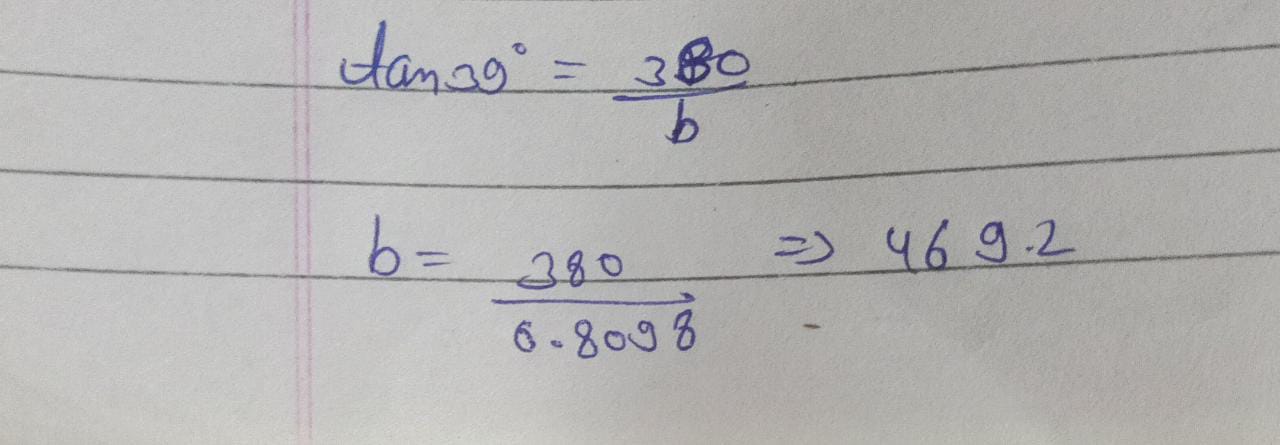 tan 39° = 380 / b
b = 380 / 0.8098 => 469.2